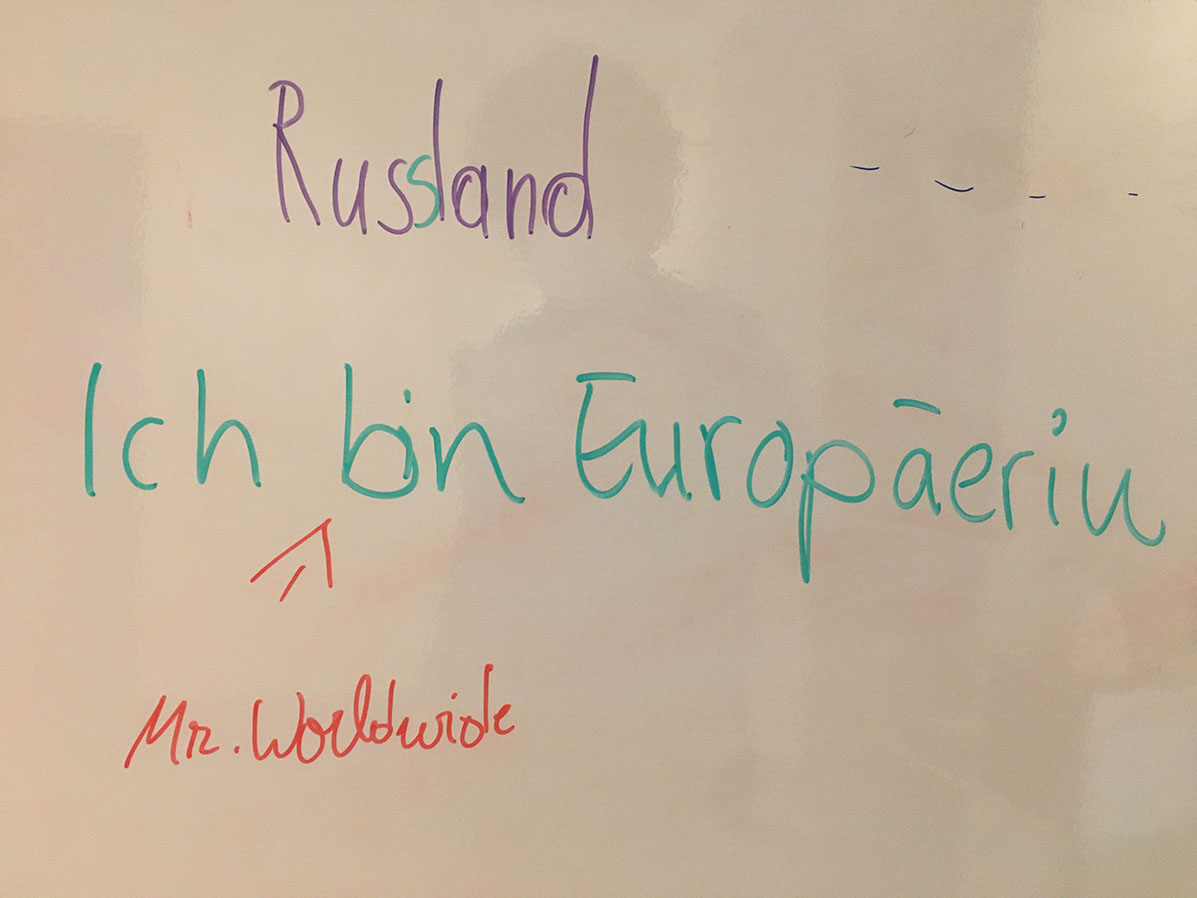 Russland
Ich bin Europäerin
Mr. Worldwide